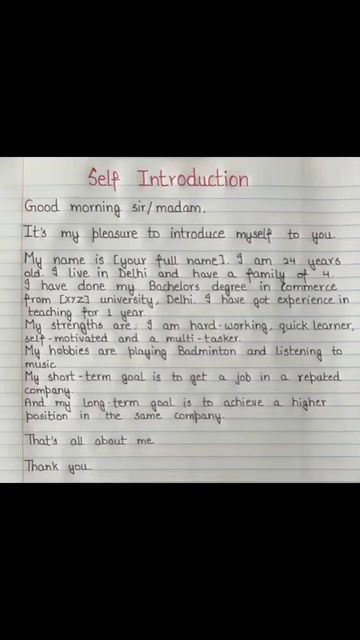 Self Introduction
Good morning sir/madam.
It's my pleasure to introduce myself to you.
My name is [your full name]. I am 24 years
old. I live in Delhi and have a family of 4.
I have done my Bachelors degree in commerce
from [xyz] university, Delhi. I have got experience in
teaching for 1 year.
My strengths are; I am hard-working, quick learner,
self-motivated and a multi-tasker.
My hobbies are playing Badminton and listening to
music
My short-term goal is to get a job in a reputed
company.
And my long-term goal is to achieve a higher
position in the same company.
That's all about me
Thank you